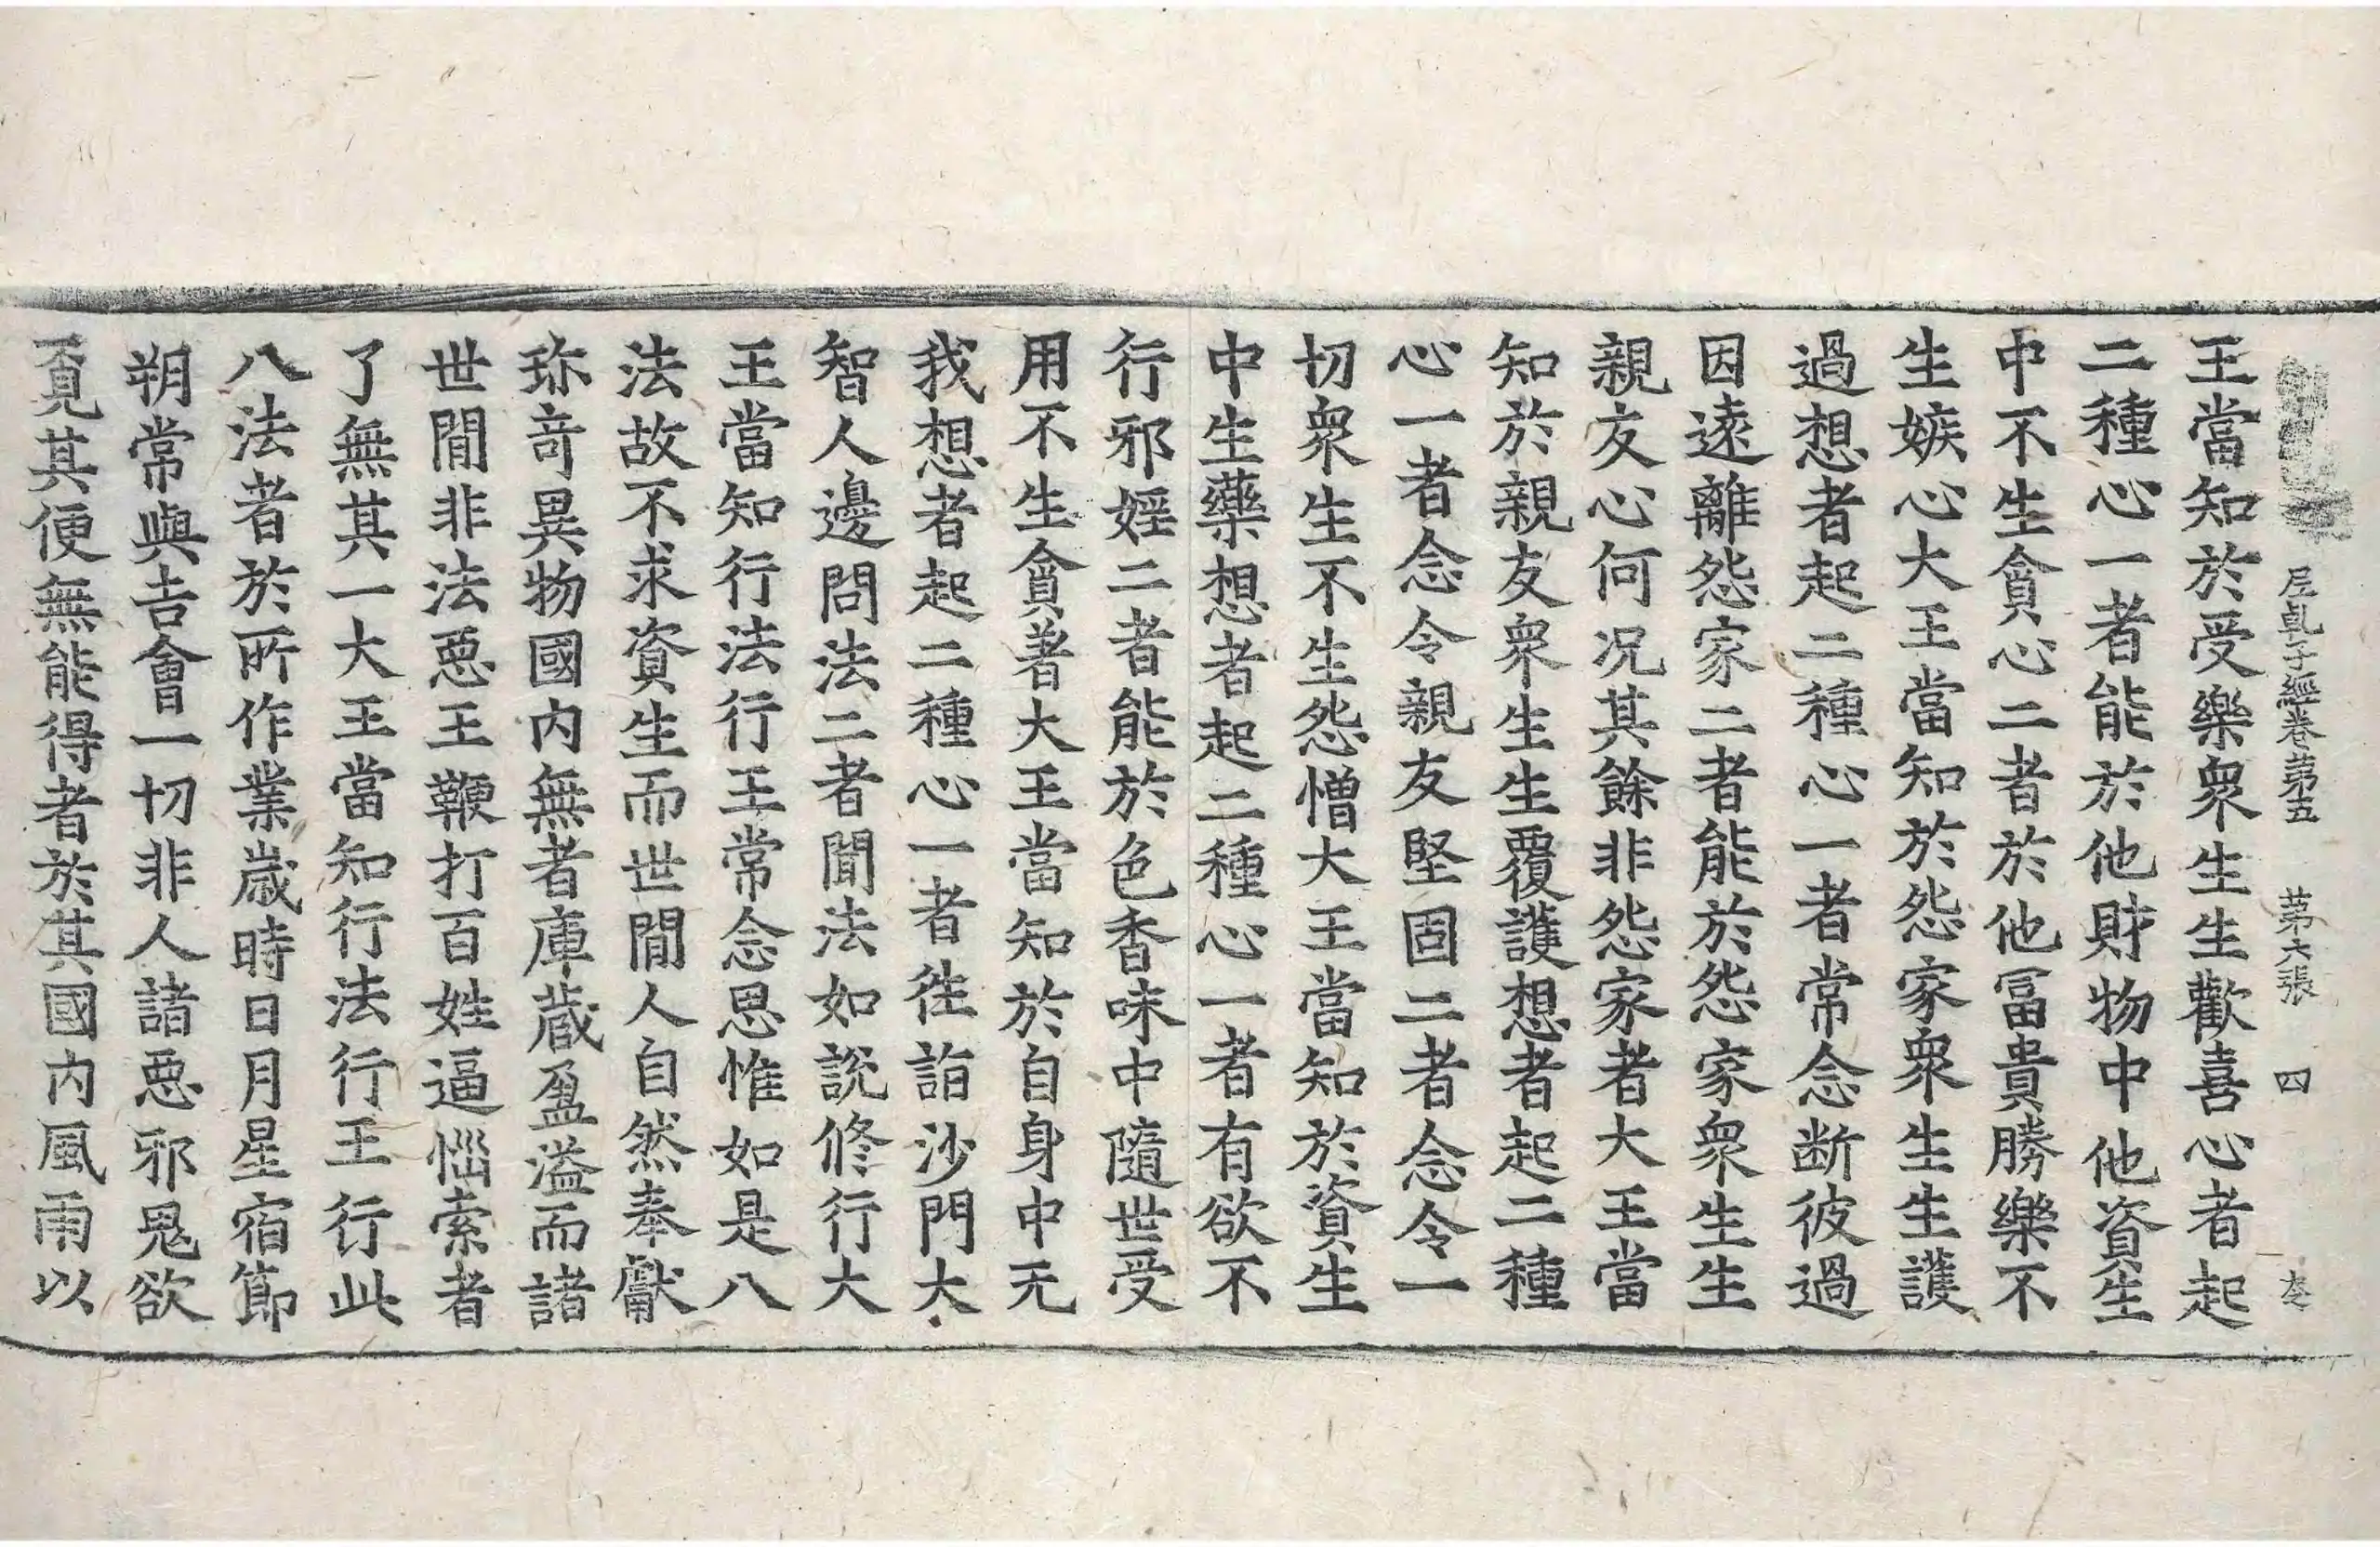 尼乹子經卷第五 第六張 四
王當知於受樂衆生生歡喜心者起
二種心一者能於他財物中他資生
中不生貪心二者於他冨貴勝樂不
生嫉心大王當知於怨家衆生生護
過想者起二種心一者常念断彼過
因遠離怨家二者能於怨家衆生生
親友心何况其餘非怨家者大王當
知於親友衆生生覆護想者起二種
心一者念令親友堅固二者念令一
切衆生不生怨憎大王當知於資生
中生藥想者起二種心一者有欲不
行邪婬二者能於色香味中隨世受
用不生貪著大王當知於自身中无
我想者起二種心一者徃詣沙門大
智人邊問法二者聞法如說修行大
王當知行法行王常念思惟如是八
法故不求資生而世間人自然奉獻
珎竒異物國内無者庫蔵盈溢而諸
世間非法惡王鞭打百姓逼惱索者
了無其一大王當知行法行王行此
八法者於所作業嵗時日月星宿節
朔常與吉會一切非人諸惡邪鬼欲
覓其便無能得者於其國内風雨以